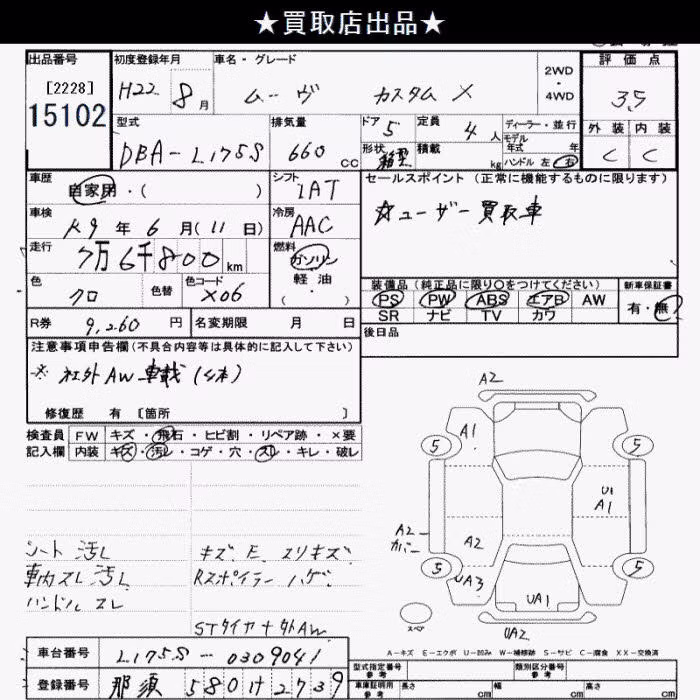 ★買取店出品★
出品番号
[2228]
15102
初度登録年月
H22 8月
車名・グレード
ムーヴ カスタム X
2WD・4WD
評価点
3.5
外装 内装
C C
型式
DBA-L175S
排気量
660 CC
ドア 5
定員 4人
形状 箱型
積載 kg
ディーラー・並行
モデル年式 年
ハンドル 左・右
車歴
自家用・( )
シフト
IAT
セールスポイント (正常に機能するものに限ります)
☆ユーザー買取車
車検
R9年6月(11日)
冷房
AAC
走行
7万6千800km
燃料
ガソリン
軽油
・( )
色
クロ
色替
色コード
X06
装備品 (純正品に限り○をつけてください)
PS PW ABS エアB AW
SR ナビ TV カワ
新車保証書
有・無
R券 9,260円
名変期限 月 日
後日品
注意事項申告欄 (不具合内容等は具体的に記入して下さい)
※ 社外AW車載(4本)
修復歴 有 [箇所 ]
検査員 FW キズ・飛石・ヒビ割・リペア跡・×要
記入欄 内装 キズ・汚レ・コゲ・穴・スレ・キレ・破レ
シート汚レ
車内スレ汚レ
ハンドルスレ
キズ E スリキズ
Rスポイラーハゲ
STタイヤ+外AW
A2
A1
5 5
U1
A1
A2
カバー
A2
5 5
UA3
UA1
スペア
UA2
A-キズ E-エクボ U-凹み W-補修跡 S-サビ C-腐食 XX-交換済
車台番号 L175S-0309041
登録番号 那須 580 け 2739
型式指定番号 参考
類別区分番号 参考
車庫証明用 参考 長さ cm 幅 cm 高さ cm